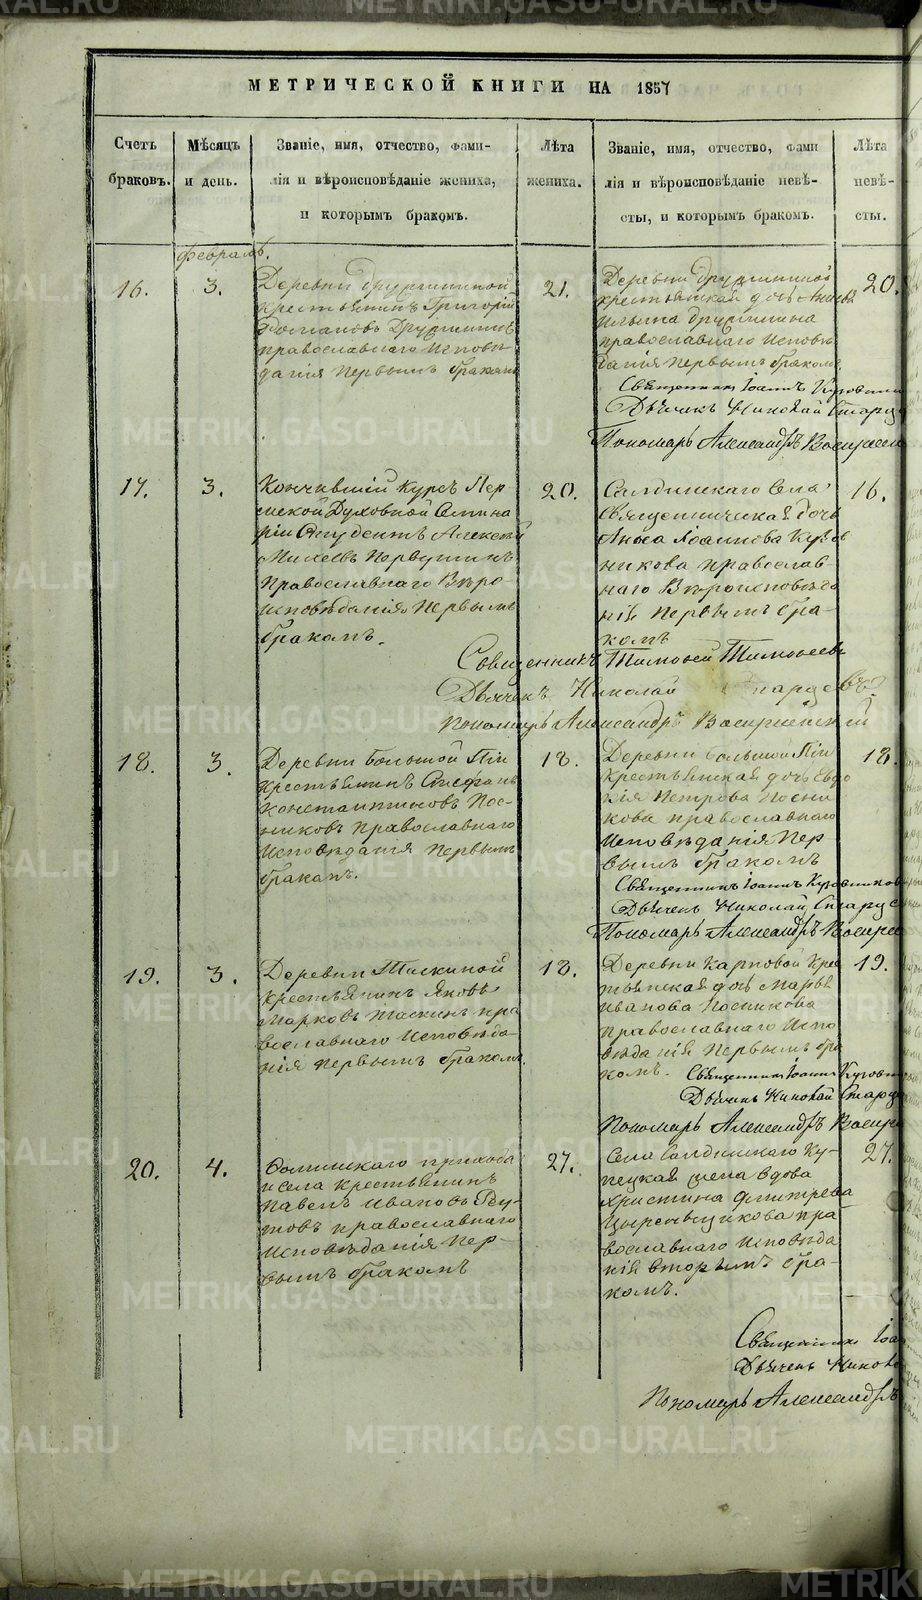 МЕТРИЧЕСКОЙ КНИГИ НА 1857
Счетъ браковъ.
Мѣсяцъ и день.
Званіе, имя, отчество, фами-
лія и вѣроисповѣданіе жениха,
и которымъ бракомъ.
Лѣта жениха.
Званіе, имя, отчество, фами
лія и вѣроисповѣданіе невѣ-
сты, и которымъ бракомъ.
Лѣта невѣ-
сты.
Февраль.
16.
3.
Деревни Дружининой
крестьянинъ Григорій
Дружининъ
православнаго исповѣ
данія первымъ бракомъ
21.
Деревни Дружининой
крестьянская дочь
Ильина Дружинина
православнаго исповѣ
данія первымъ бракомъ
20.
Священникъ Іоаннъ
Дьячекъ Николай Старце
Пономарь Александръ Воскресен
17.
3.
Кончившій курсъ Пер
мской Духовной Семина
ріи Студентъ Алексѣй
Михеевъ Первушинъ
Православнаго Вѣро-
исповѣданія первымъ
бракомъ.
20.
Салдинскаго Села
Священническая дочь
Анна Іоаннова
никова православ
наго Вѣроисповѣда
нія первымъ бра-
комъ
16.
Священникъ Тимофей Тимофеевъ
Дьячекъ Николай Старцевъ
Пономарь Александръ Воскресенскій
18.
3.
Деревни Большой
крестьянинъ Стефанъ
Константиновъ Пос-
никовъ православнаго
исповѣданія первымъ
бракомъ.
18.
Деревни Большой
крестьянская дочь Евдо
кія Петрова Посни
кова православнаго
исповѣданія пер
вымъ бракомъ
18.
Священникъ Іоаннъ
Дьячекъ Николай Старце
Пономарь Александръ Воскре
19.
3.
Деревни Таскиной
крестьянинъ Яковъ
Марковъ Таскинъ пра
вославнаго исповѣда-
нія первымъ бракомъ.
18.
Деревни Карповой крес
тьянская дочь Марья
Иванова Посникова
православнаго испо
вѣданія первымъ бра
комъ.
19.
Священникъ Іоаннъ
Дьячекъ Николай Старце
Пономарь Александръ Воскре
20.
4.
прихода
и села крестьянинъ
Павелъ Ивановъ
православнаго
исповѣданія пер-
вымъ бракомъ
27.
Села Салдинскаго Ку-
пецкая жена вдова
Христина Дмитрева
пра-
вославнаго исповѣда
нія вторымъ бра-
комъ.
27.
Священникъ Іоа
Дьячекъ Никола
Пономарь Александръ